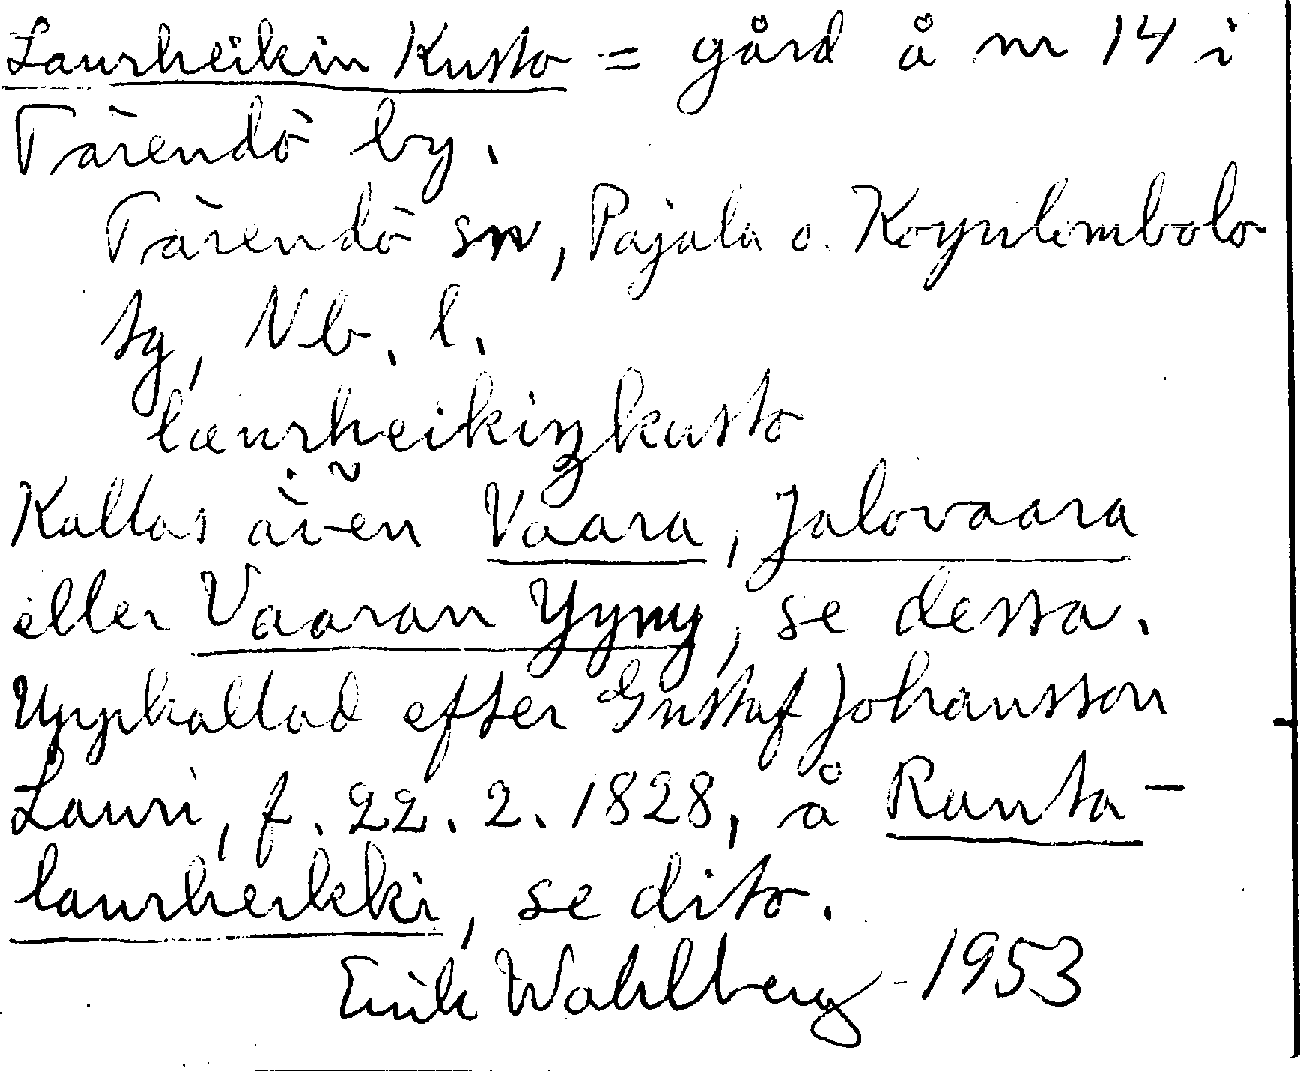 Laurheikin Kusto = gård å nr 14 i
Tärendö by.
Tärendö sn, Pajala o. Korpilombolo
tg, Nb. l.
laurheikiŋkusto
Kallas även Vaara, Jalovaara
eller Vaaran Yyny, se dessa.
Uppkallad efter Gustaf Johansson
Lauri, f. 22. 2. 1828, å Ranta-
laurheikki, se dito.
Erik Wahlberg 1953